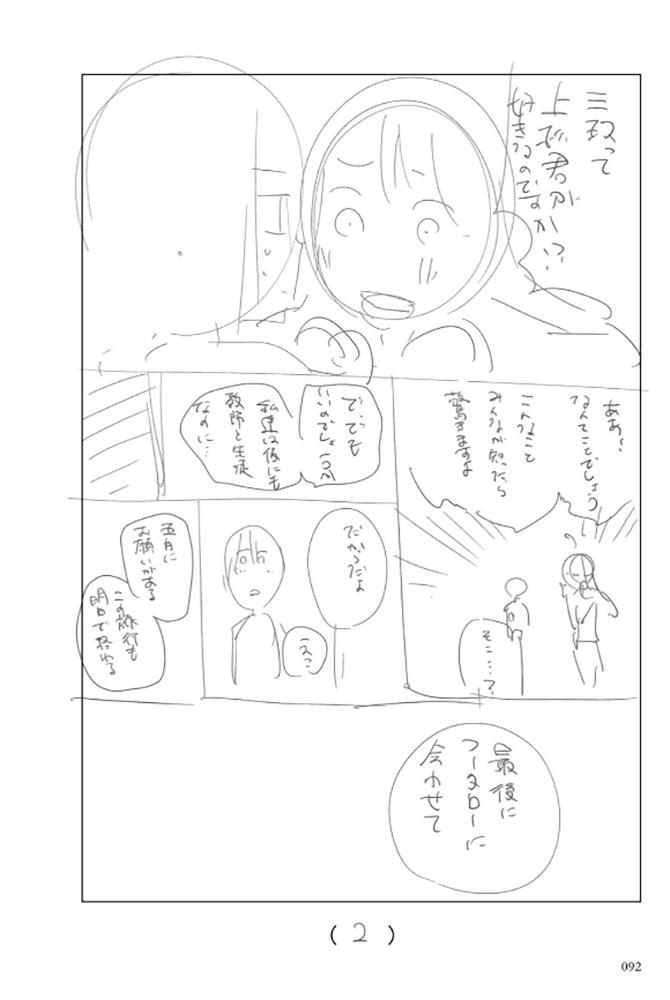 三玖って
上杉君が
好きなのですか!?
ああ…
なんてことでしょう
こんなこと
みんなが知ったら
驚きますよ
そこ…?
で…でも
いいのでしょうか
私達は仮にも
教師と生徒
なのに…
だからだよ
えっ?
五月に
お願いがある
この旅行も
明日で終わる
最後に
フータローに
会わせて
(2)
092